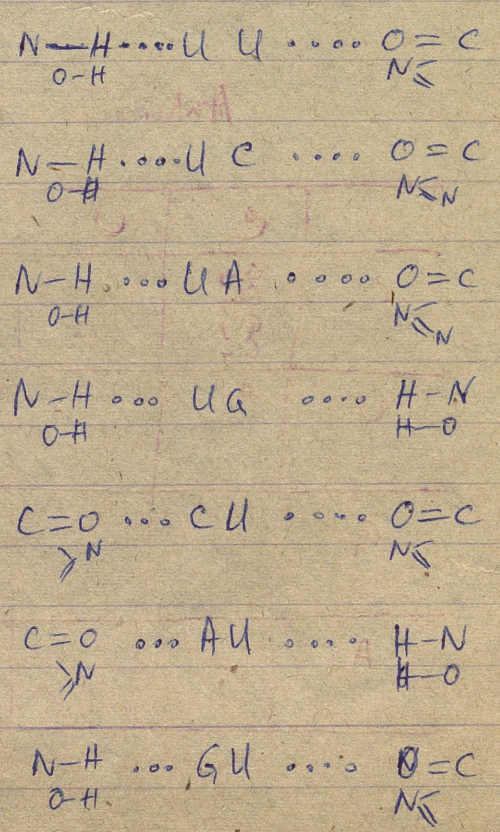 N—H.....U U .....O=C
O-H N=
N—H.....U C ....O=C
O-H N=N
N-H.....U A .....O=C
O-H N=N
N-H ....U G ....H-N
O-H H-O
C=O ....C U .....O=C
>N N=
C=O ....A U .....H-N
>N H-O
N-H ....G U .....O=C
O-H N=